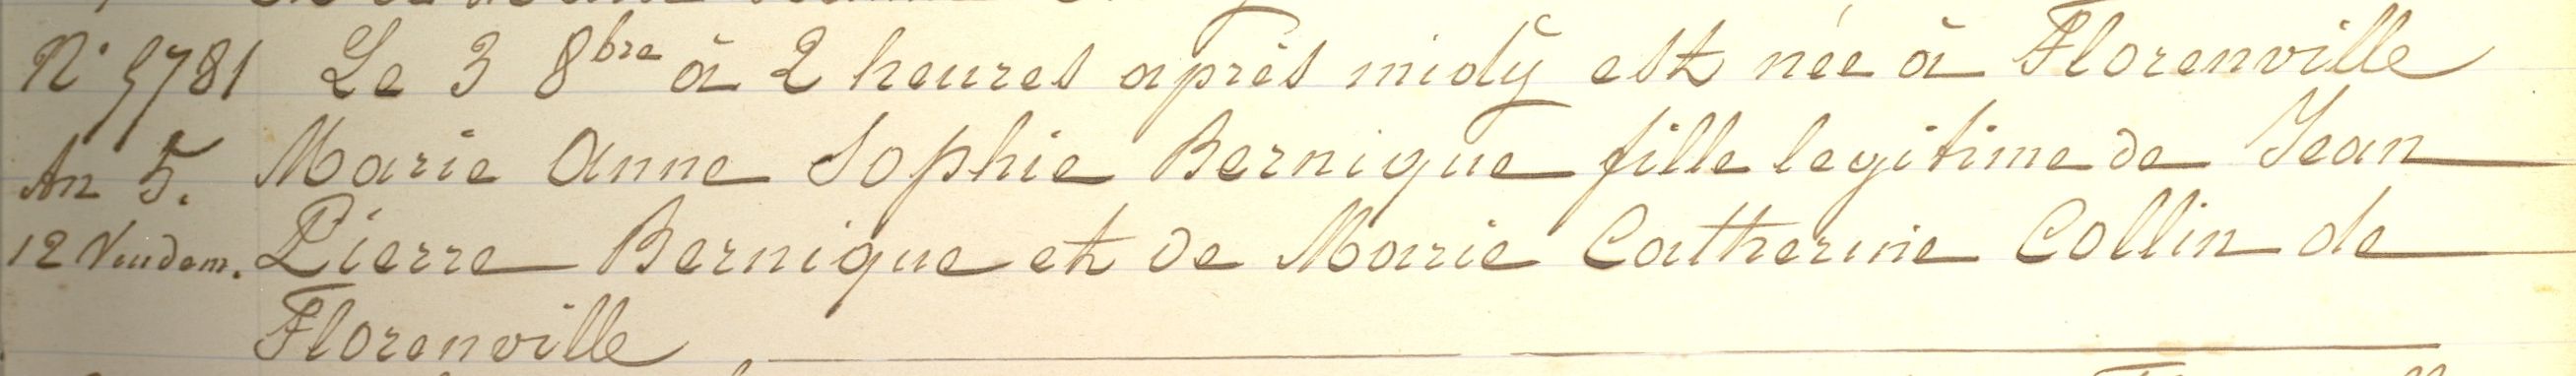 N° 5781 Le 3 8bre à 2 heures après midÿ est née à Florenville
An 5. Marie Anne Sophie Bernique fille legitime de Jean
12 Vendem. Pierre Bernique et de Marie Catherine Collin de
Florenville.